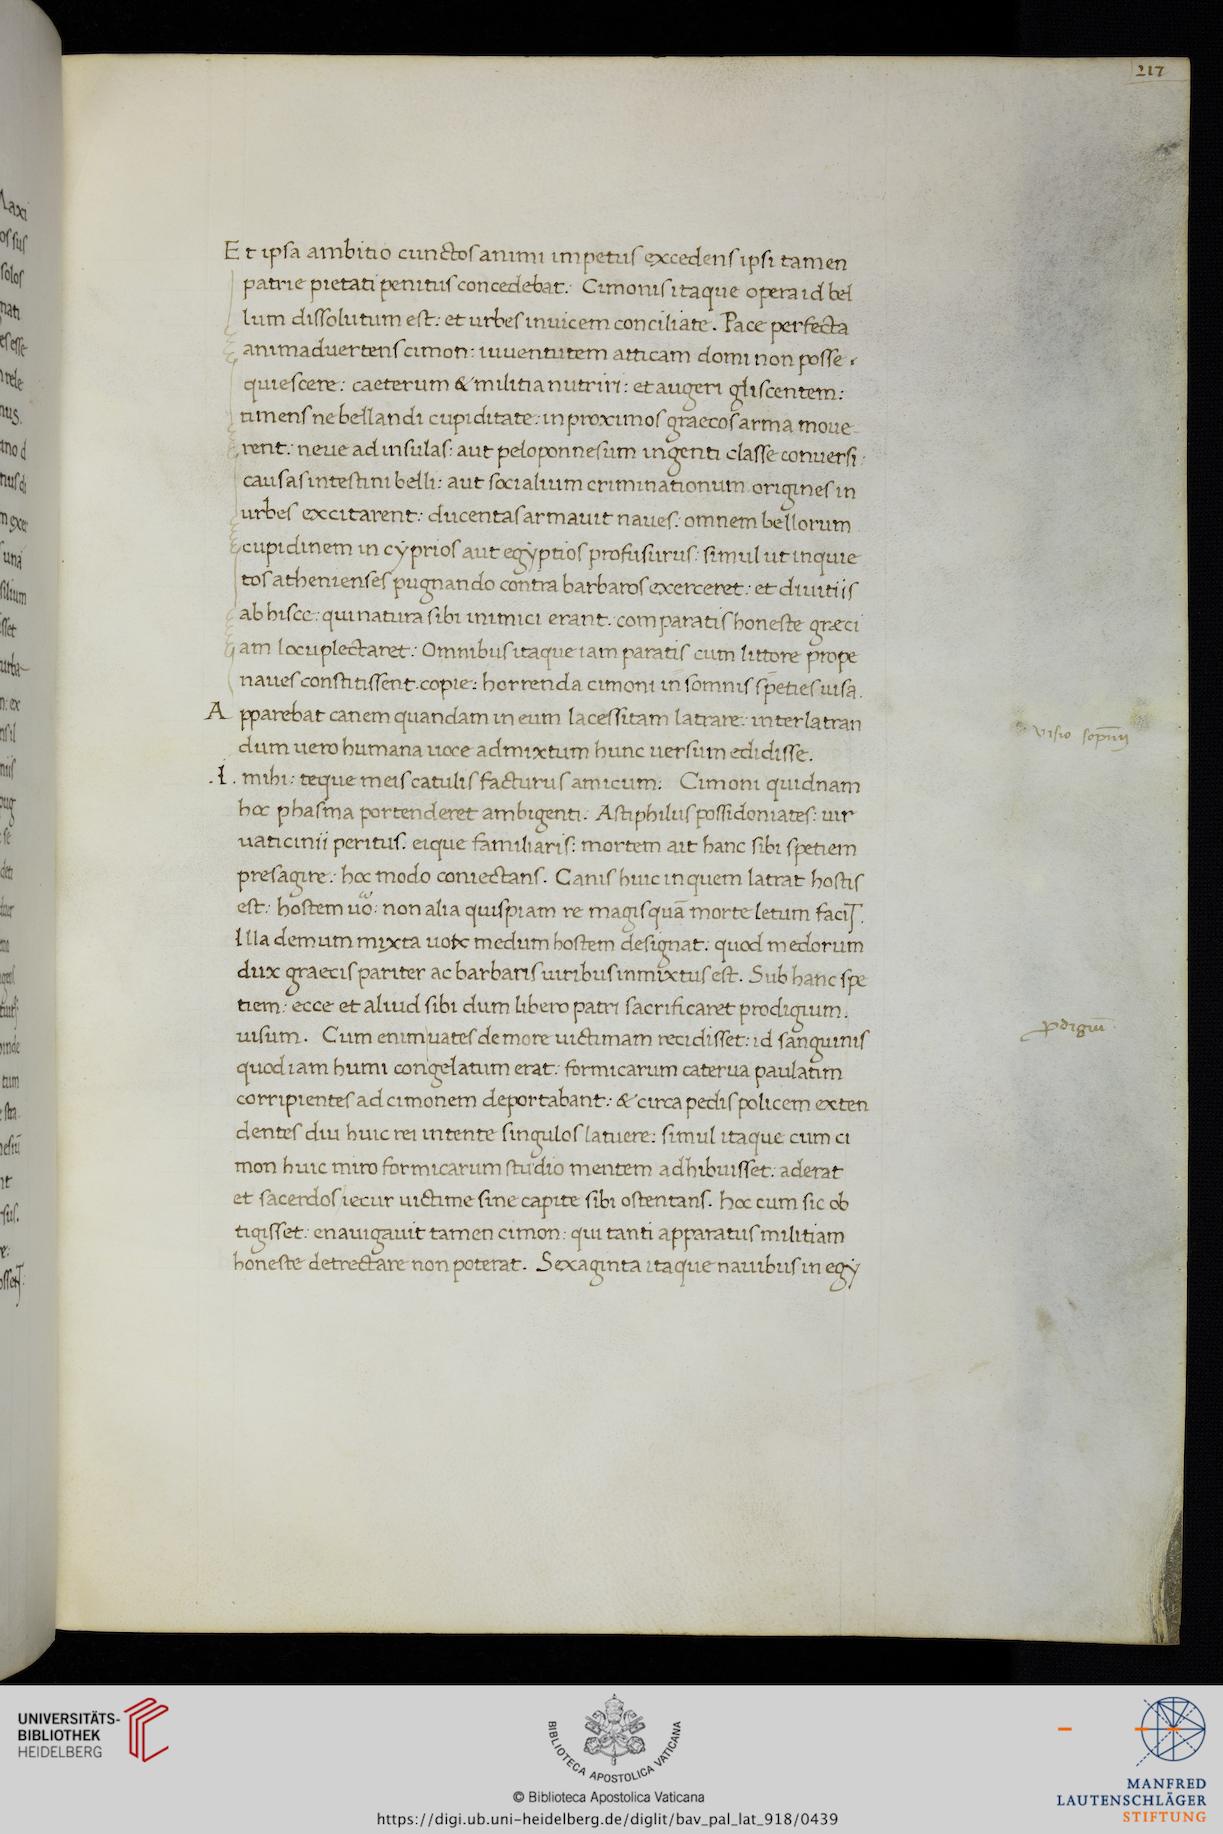 217
Et ipsa ambitio cunctos animi impetus excedens ipsi tamen
patrie pietati penitus concedebat. Cimonis itaque opera id bel
lum dissolutum est: et urbes inuicem conciliate. Pace perfecta
animaduertens cimon: iuuentutem atticam domi non posse
quiescere: caeterum & militia nutriri: et augeri gliscentem:
timens ne bellandi cupiditate: in proximos graecos arma moue
rent: neue ad insulas: aut peloponnesum ingenti classe conuersi
causas intestini belli: aut socialium criminationum origines in
urbes excitarent: ducentas armauit naues: omnem bellorum
cupidinem in cyprios aut egyptios profusurus: simul ut inquie
tos athenienses pugnando contra barbaros exerceret: et diuitiis
ab hisce: qui natura sibi inimici erant. comparatis honeste græci
am locuplectaret: Omnibus itaque iam paratis cum littore prope
naues constitissent copie: horrenda cimoni in somnis speties uisa.
Apparebat canem quandam in eum lacessitam latrare: inter latran
dum uero humana uoce admixtum hunc uersum edidisse.
.I. mihi: teque meis catulis facturus amicum: Cimoni quidnam
hoc phasma portenderet ambigenti. Astiphilus possidoniates: uir
uaticinii peritus: eique familiaris: mortem ait hanc sibi spetiem
presagire: hoc modo coniectans. Canis huic in quem latrat hostis
est: hostem uo: non alia quispiam re magis quā morte letum faciт.
Illa demum mixta uox medum hostem designat: quod medorum
dux graecis pariter ac barbaris uiribus inmixtus est. Sub hanc spe
tiem: ecce et aliud sibi dum libero patri sacrificaret prodigium.
uisum. Cum enim uates de more uictimam recidisset: id sanguinis
quod iam humi congelatum erat: formicarum caterua paulatim
corripientes ad cimonem deportabant: & circa pedis policem exten
dentes diu huic rei intente singulos latuere: simul itaque cum ci
mon huic miro formicarum studio mentem adhibuisset: aderat
et sacerdos iecur uictime sine capite sibi ostentans. hoc cum sic ob
tigisset: enauigauit tamen cimon: qui tanti apparatus militiam
honeste detrectare non poterat. Sexaginta itaque nauibus in egy
visio
ꝓdigiū
UNIVERSITÄTS-
BIBLIOTHEK
HEIDELBERG
BIBLIOTECA APOSTOLICA VATICANA
© Biblioteca Apostolica Vaticana
https://digi.ub.uni-heidelberg.de/diglit/bav_pal_lat_918/0439
MANFRED
LAUTENSCHLÄGER
STIFTUNG